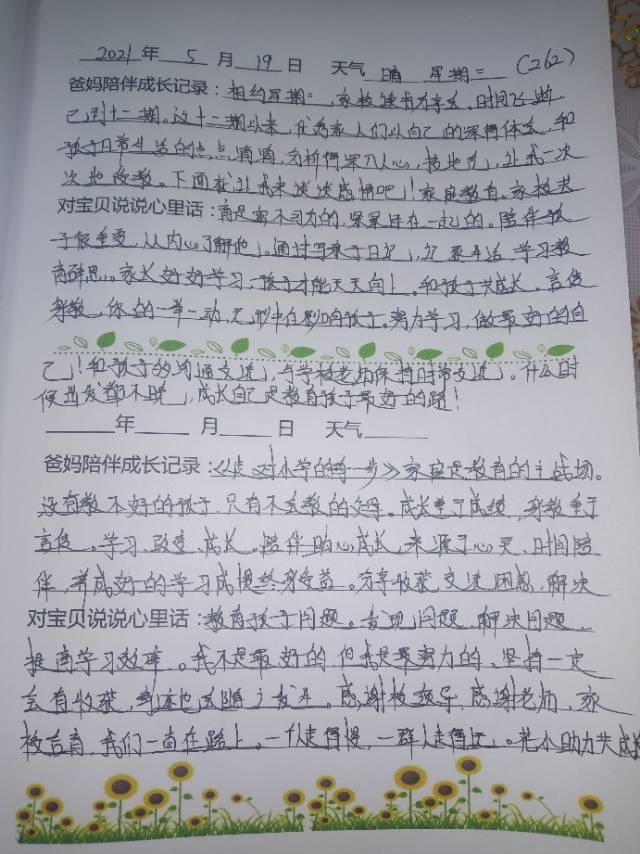 2021年 5 月 19 日 天气 晴 星期三 (262)
爸妈陪伴成长记录：相约星期三，家校读书分享会，时间飞逝
已到十二期。这十二期以来，优秀家人们以自己的深得体会，和
孩子日常生活的点点滴滴，分析得深入人心，接地气，让我一次
次地改数。下面就让我来谈谈感悟吧！家庭教育、家校共
对宝贝说说心里话：育是密不可分的，紧紧连在一起的。陪伴孩
子很重要，从内心了解他，通过写亲子日记，记录生活、学习教
育 思。家长好好学习，孩子才能天天向上。和孩子共成长，言传
身教，你的一举一动，无形中在影响孩子。努力学习，做最好的自
己！和孩子的沟通交流，与学校老师保持时常交流。什么时
候出发都不晚，成长自己是教育孩子最好的路！
年 月 日 天气
爸妈陪伴成长记录：《走对小学的每一步》家庭是教育的主战场。
没有教不好的孩子，只有不会教的父母。成长重于成绩，身教重于
言传。学习、改变、成长，陪伴助心成长，来源于心灵、时间陪
伴，养成好的学习习惯终身受益。分享收获、交流困惑、解决
对宝贝说说心里话：教育孩子问题。发现问题、解决问题、
提高学习效率。我不是最好的，但我是最努力的。坚持一定
会有收获，奇迹也会随之发生。感谢校领导、感谢老师、家
校言育，我们一直在路上。一个人走得慢，一群人走得远。 小助力共成长